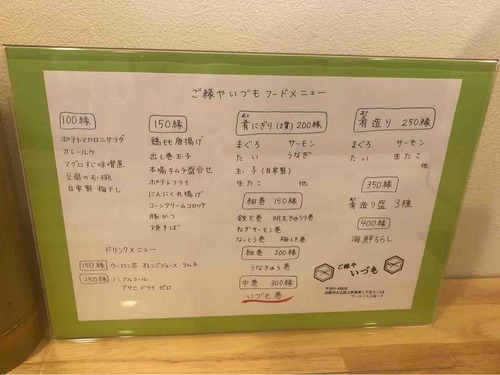 ご縁やいづも フードメニュー
100縁
ポテトマカロニサラダ
カレールウ
マグロすじ味噌煮
豆腐のお・桃
自家製 梅干し
150縁
鶏もも唐揚げ
出し巻玉子
本場キムチ盛合せ
ポテトフライ
にんにく丸揚げ
コーンクリームコロッケ
豚かつ
焼きそば
肴にぎり(2貫) 200縁
まぐろ サーモン
たい うなぎ
玉子(自家製)
生たこ 他
細巻 150縁
鉄火巻 明太きゅうり巻
ねぎサーモン巻
なっとう巻 梅しそ巻
細巻 200縁
うなきゅう巻
中巻 300縁
いづも巻
肴造り 250縁
まぐろ サーモン
たい 生たこ
他
350縁
肴造り盛 3種
400縁
海鮮ちらし
ドリンクメニュー
150縁 ウーロン茶 オレンジジュース・ラムネ
250縁 ノンアルコール
アサヒドライゼロ
ご縁や
いづも